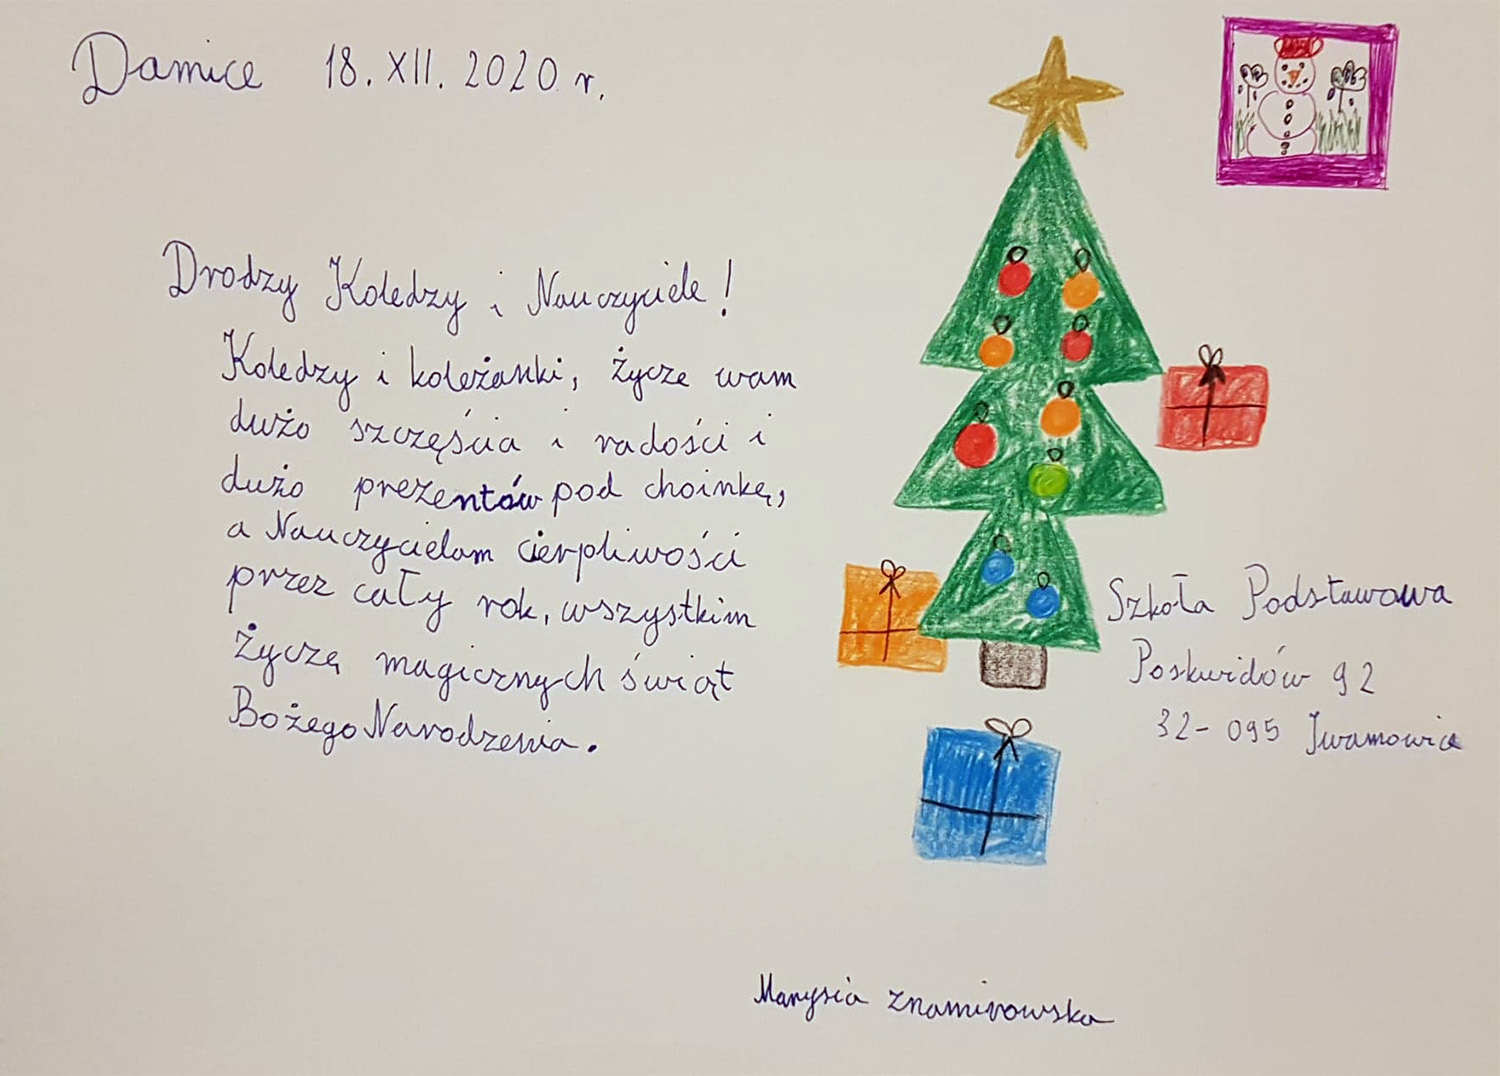 Damice 18. XII. 2020 r.
Drodzy Koledzy i Nauczyciele!
Koledzy i koleżanki, życze wam
dużo szczęścia i radości i
dużo prezentów pod choinkę,
a Nauczycielom cierpliwości
przez cały rok, wszystkim
życzę magicznych świąt
Bożego Narodzenia.
Szkoła Podstawowa
Poskwidów 92
32-095 Iwanowice
Marysia Znamirowska